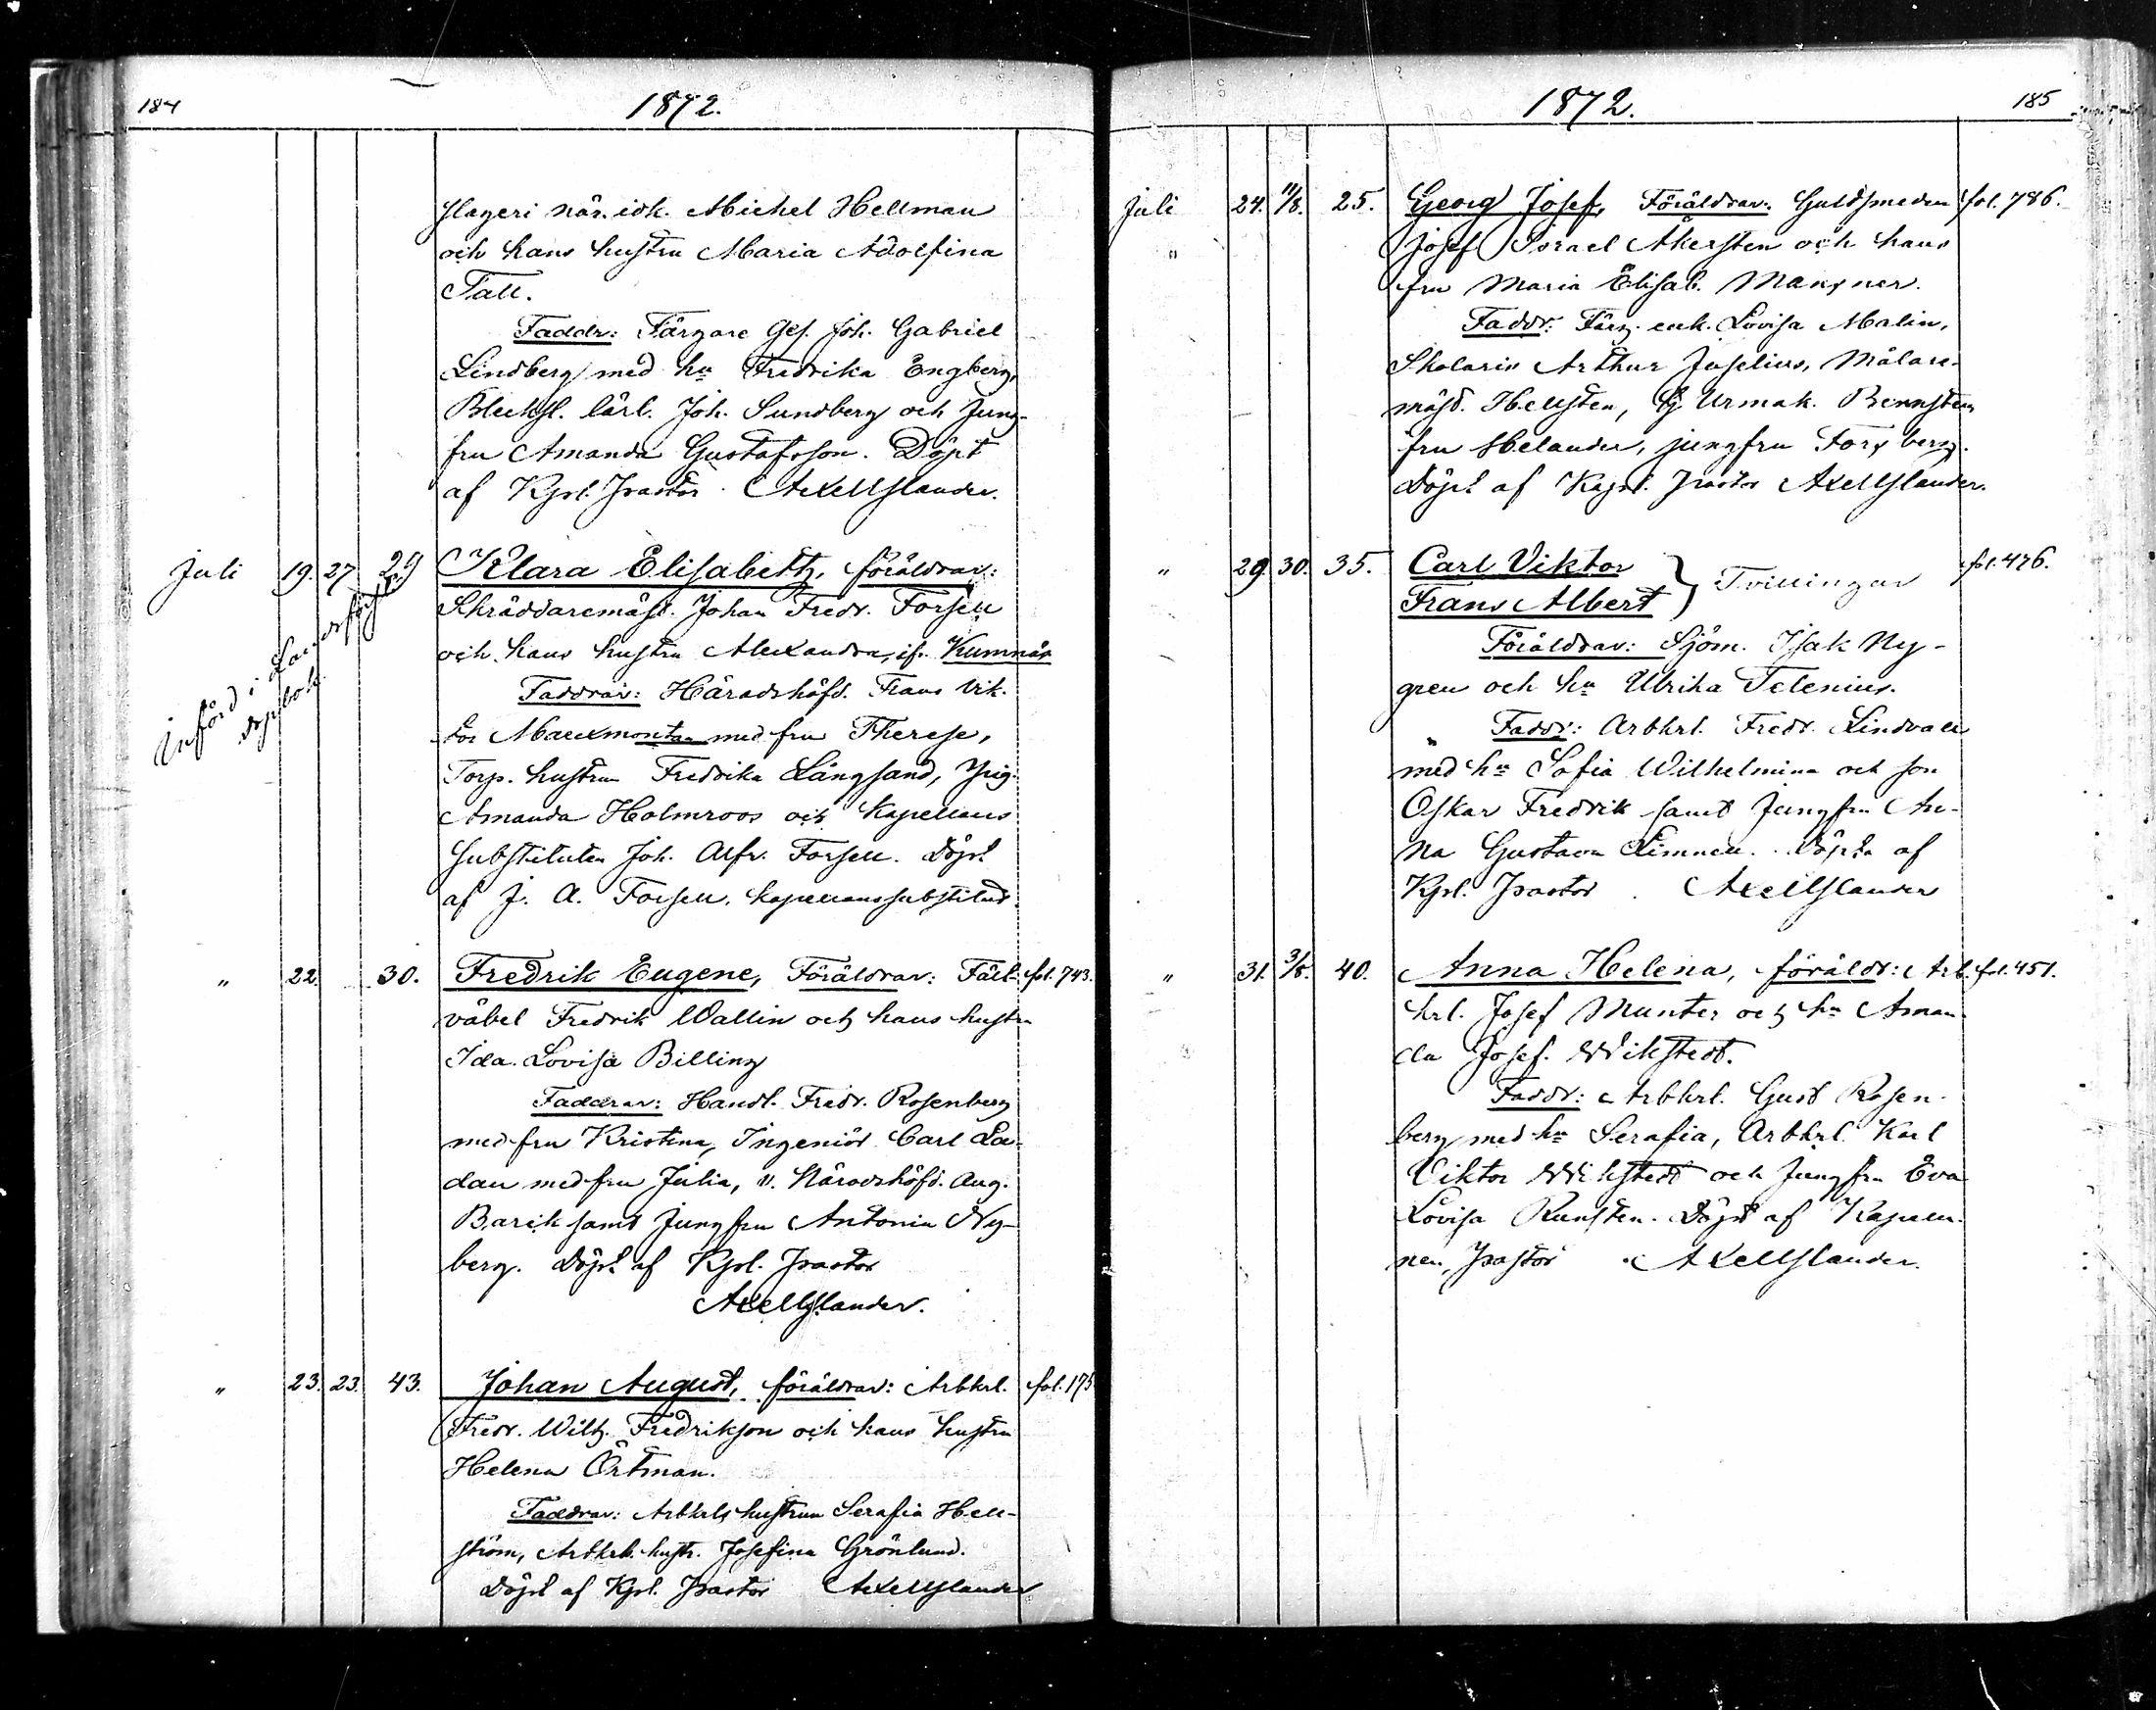 184
1872.
slageri när. idk. Michel Hellman
och hans hustru Maria Adolfina
Tall.
Faddr: Färgare Ges. Joh. Gabriel
Lindberg med hu Fredrika Engberg,
Bleksl. lärl. Joh. Sundberg och Jung-
fru Amanda Gustafsson. Döpt
af Kpl. Pastor Axell
Juli 19. 27 29 Klara Elisabeth, föräldrar:
Införd i
dopbok
Skräddaremäst. Johan Fredr. Forsell
och hans hustru Alexandra, if. Kumnäs
Faddrar: Häradshöfd. Frans Vik-
tor Marcxmontan med fru Therese,
Torp. hustrun Fredrika Långsand, Pig.
Amanda Holmroos och Kapellans
substituten Joh. Alfr. Forsell. Döpt
af J. A. Forsell, kapellanssubstitut
" 22. 30. Fredrik Eugene, Föräldrar: Fält- fol. 743.
väbel Fredrik Wallin och hans hustru
Ida Lovisa Billing
Faddrar: Handl. Fredr. Rosenberg
med fru Kristina, Ingeniör Carl La-
dau med fru Julia, v. Häradshöfd. Aug.
Barck samt jungfru Antonia Ny-
berg. Döpt af Kpl. Pastor
Axell
" 23. 23. 43. Johan August, föräldrar: Arbkrl. fol. 175
Fredr. Wilh. Fredrikson och hans hustru
Helena Örtman.
Faddrar: Arbkrls hustrun Serafia Hell-
ström, Arbkrl. hustr. Josefina Grönlund.
Döpt af Kpl. Pastor Axell
1872.
185
Juli 24. 11/8. 25. Georg Josef, Föräldrar: Guldsmeden fol. 786.
" Josef Israel Åkersten och hans
fru Maria Elisab. Manxner.
Faddr: Färg. enk. Lovisa Malin,
Skolaris Arthur Juselius, Målare-
mäst. Hellsten, Urmak. Rennsten
fru Helander, jungfru Forsberg.
Döpt af Kapl. Pastor Axell
" 29. 30. 35. Carl Viktor fol. 476.
Frans Albert } Tvillingar
Föräldrar: Sjöm. Isak Ny-
gren och hu Ulrika Telenius.
Faddr: Arbkrl. Fredr. Lindvall
med hu Sofia Wilhelmina och son
Oskar Fredrik samt jungfru An-
na Gustava Limnell. Döpta af
Kpl. Pastor Axell
" 31. 3/8. 40. Anna Helena, föräldr: Arb. fol. 451.
krl. Josef Munter och hu Aman-
da Josef. Wikstedt.
Faddr: Arbkrl. Gust Rosen-
berg med hu Serafia, Arbkrl. Karl
Viktor Wikstedt och Jungfru Eva
Lovisa Runsten. Döpt af Kapella-
nen, Pastor Axell